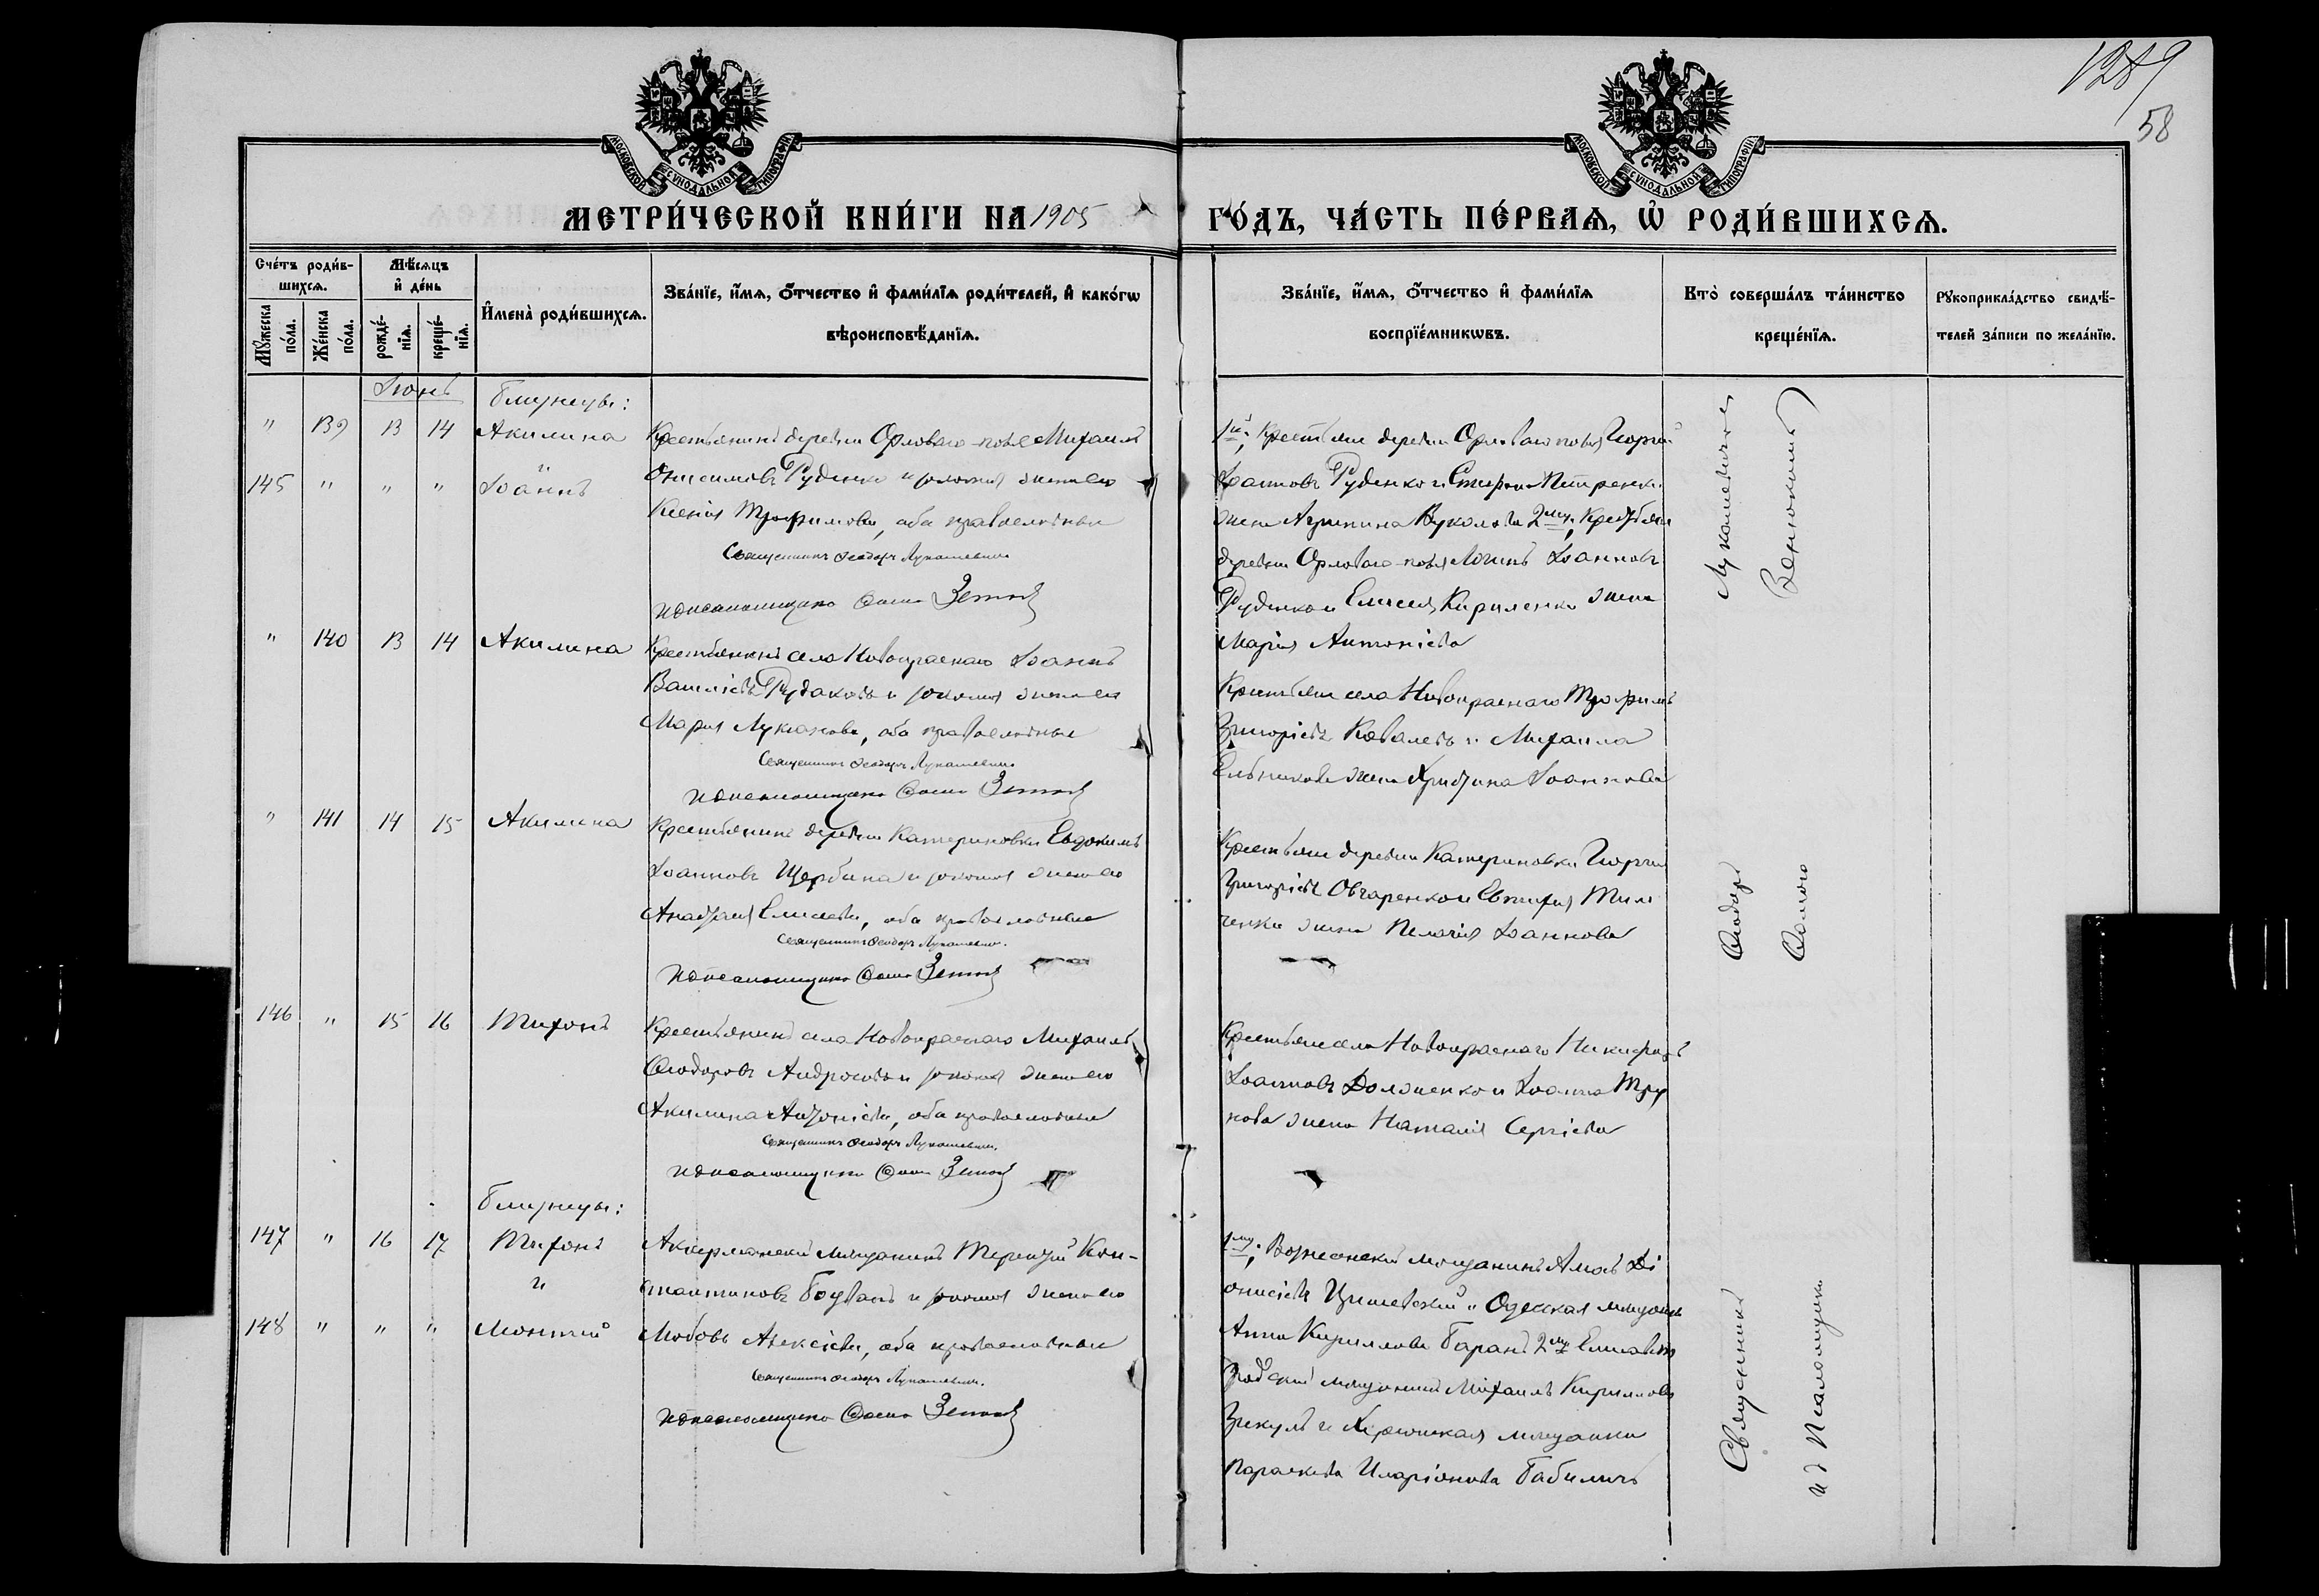 1289
58
МОСКОВСКОЙ СѴНОДАЛЬНОЙ ТИПОГРАФІИ
МОСКОВСКОЙ СѴНОДАЛЬНОЙ ТИПОГРАФІИ
МЕТРИ́ЧЕСКОЙ КНИ́ГИ НА 1905 ГО́ДЪ, ЧА́СТЬ ПЕ́РВАѦ, Ѡ҆ РОДИ́ВШИХСѦ.
Сче́тъ роди́вшихсѧ.
Мꙋ́жеска по́ла.
Же́нска по́ла.
Мѣ́сѧцъ и҆ де́нь
рожде́нїѧ.
креще́нїѧ.
И҆мена̀ роди́вшихсѧ.
Зва́нїе, и҆́мѧ, ѻ҆́тчество и҆ фами́лїѧ роди́телей, и҆ како́гѡ вѣроисповѣ́данїѧ.
Зва́нїе, и҆́мѧ, ѻ҆́тчество и҆ фами́лїѧ воспрїе́мникѡвъ.
Кто̀ соверша́лъ та́инство креще́нїѧ.
Рꙋкоприкла́дство свидѣ́телей за́писи по жела́нїю.
Іюнь
Близнецы:
" 139 13 14 Акилина
и
145 " " " Іоаннъ
Крестьянинъ деревни Орлового-поля Михаилъ
Онисимовъ Руденко и законная жена его
Ксенія Трофимова, оба православные
Священникъ Ѳеодоръ Лукашевичъ
1й; Крестьяне деревни Орлового поля Георгій
Іоанновъ Руденко и Спиридона Петренки
жена Агрипина Вуколова 2му; Крестьяне
деревни Орлового-поля Логинъ Іоанновъ
Руденко и Елисея Кириленки жена
Марія Антоніева
" 140 13 14 Акилина
Крестьянинъ села Новокраснаго Іоаннъ
Василіевъ Рудаковъ и законная жена его
Марія Лукіанова, оба православные
Священникъ Ѳеодоръ Лукашевичъ
Крестьяне села Новокраснаго Трофимъ
Григоріевъ Ковалевъ и Михаила
жена Христина Іоаннова
" 141 14 15 Акилина
Крестьянинъ деревни Катериновки Евдокимъ
Іоанновъ Щербина и законная жена его
Анастасія Елисеева, оба православные
Священникъ Ѳеодоръ Лукашевичъ.
Крестьяне деревни Катериновки Георгій
Григоріевъ Овчаренко и Евтихія
ченки жена Пелагія Іоаннова
146 " 15 16 Тихонъ
Крестьянинъ села Новокраснаго Михаилъ
Ѳеодоровъ Андросовъ и законная жена его
Акилина Антоніева, оба православные
Священникъ Ѳеодоръ Лукашевичъ.
Крестьяне села Новокраснаго Никифоръ
Іоанновъ Долженко и Іоанна
жена Наталія Сергіева
Близнецы:
147 " 16 17 Тихонъ
и
148 " " " Мокій
Аккерманскій мѣщанинъ Терентій Кон-
стантиновъ и законная жена его
Любовь Алексіева, оба православные
Священникъ Ѳеодоръ Лукашевичъ.
1му; Вознесенскій мѣщанинъ Ді
онисіевъ и Одесская мѣщанка
Анна Кириллова Баранъ 2му Елисавет
градскій мѣщанинъ Михаилъ Кирилловъ
и Херсонская мѣщанка
Параскева Иларіонова
Священникъ Ѳеодоръ Лукашевичъ
и д Псаломщика